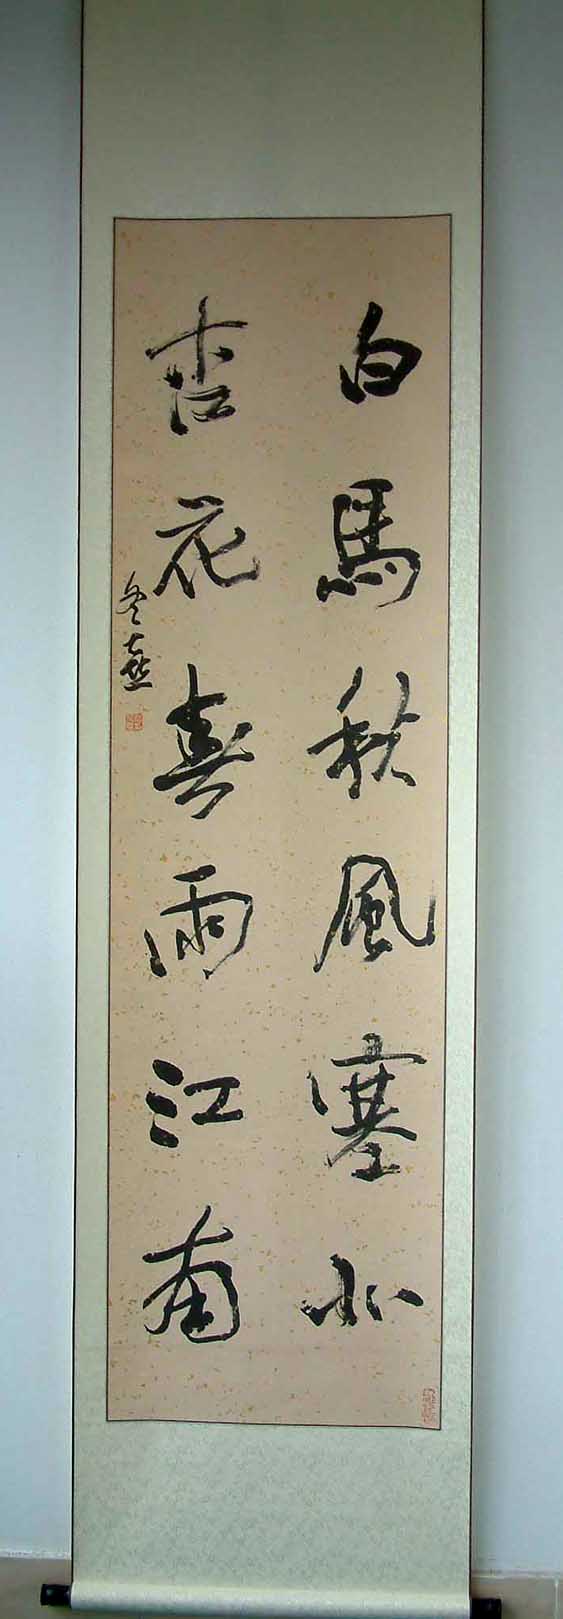 白馬秋風塞北
杏花春雨江南
冬燕